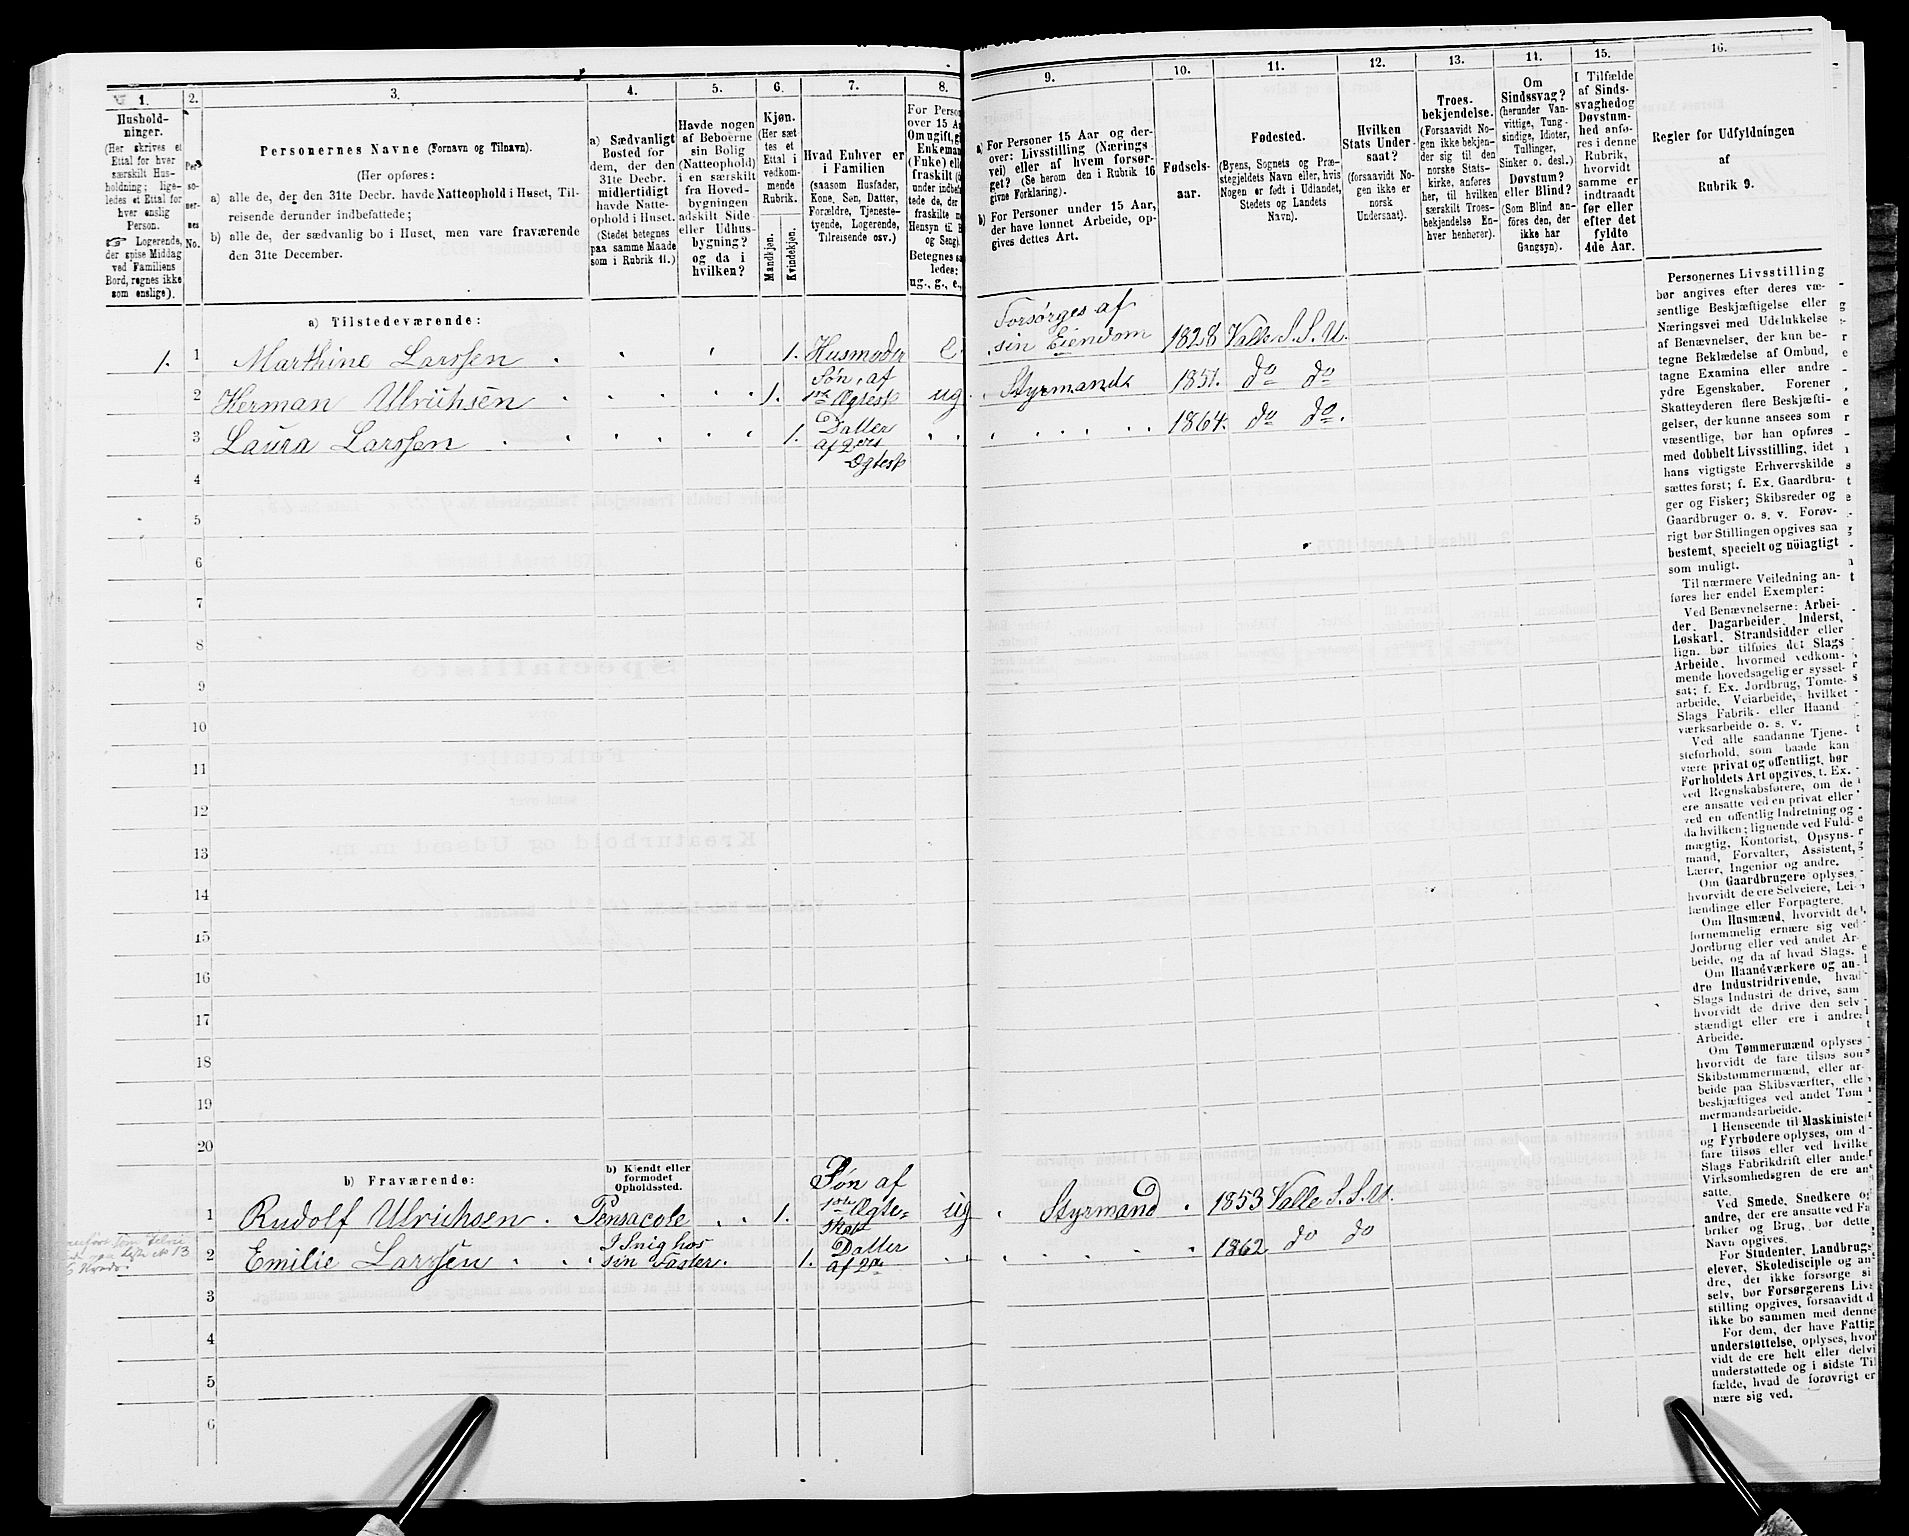 1.
Hushold-
ninger.
(Her skrives et
Ettal for hver
særskilt Hus-
holdning; lige-
ledes et Ettal for
hver enslig
Person.
Logerende,
der spise Middag
ved Familiens
Bord, regnes ikke
som enslige).
2.
Per-
so-
ner-
nes
No.
3.
Personernes Navne (Fornavn og Tilnavn).
(Her opføres:
a) alle de, der den 31te Decbr. havde Natteophold i Huset, Til-
reisende derunder indbefattede;
b) alle de, der sædvanlig bo i Huset, men vare fraværende
den 31te December.
4.
a) Sædvanligt
Bosted for
dem, der den
31te Decbr.
midlertidigt
havde Natte-
ophold i Huset.
(Stedet betegnes
paa samme Maade
som i Rubrik 11.)
5.
Havde nogen
af Beboerne
sin Bolig
(Natteophold)
i en særskilt
fra Hoved-
bygningen
adskilt Side-
eller Udhus-
bygning?
og da i
hvilken?
6.
Kjøn.
(Her sæt
tes et
Ettal i
vedkom-
mende
Rubrik.
Mandkjøn.
Kvindekjøn.
7.
Hvad Enhver er
i Familien
(saasom Husfader,
Kone, Søn, Datter,
Forældre, Tjeneste-
tyende, Logerende,
Tilreisende osv.)
8.
For Person
over 15 Aa
Om ugift, gi
Enkeman
(Enke) elle
fraskilt
under indbef
tede de,
fraskilte
Hensyn til B
og Seng).
Betegnes sa
ledes:
ug., g., e.,
9.
a) For Personer 15 Aar og der-
over: Livsstilling (Nærings
vei) eller af hvem forsør-
get? (Se herom den i Rubrik 16
givne Forklaring).
b) For Personer under 15 Aar,
der have lønnet Arbeide, op-
gives dettes Art.
10.
Fødsels-
aar.
11.
Fødested.
(Byens, Sognets og Præ-
stegjeldets Navn eller, hvis
Nogen er født i Udlandet,
Stedets og Landets
Navn).
12.
Hvilken
Stats Under
saat?
(forsaavidt No-
gen ikke er
norsk
Undersaat).
13.
Troes-
bekjendelse.
(Forsaavidt No-
gen ikke bekjen-
der sig til den
norske Stats-
kirke, anføres
her, til hvilken
særskilt Troes-
bekjendelse En-
hver henhører).
14.
Om
Sindssvag?
(herunder Van-
vittige, Tung-
sindige, Idioter,
Tullinger,
Sinker o. desl.)
Døvstum?
eller Blind?
(Som Blind an-
føres den, der
ikke har
Gangsyn).
15.
I Tilfælde
af Sinds-
svaghed og
Døvstum-
hed anfø-
res i denne
Rubrik,
hvorvidt
samme er
indtraadt
før eller
efter det
fyldte
4de Aar.
16.
Regler for Udfyldningen
af
Rubrik 9.
a) Tilstedeværende:
1. 1 Marthine Larssen 1. Husmoder e. Forsørges af
sin Eiendom 1828 Valle S. S. U.
2 Herman Ulrichsen 1. Søn af
1ste Ægtesk ug. Styrmand 1851. do do
3 Laura Larssen 1. Datter
af 2det
Ægtesk 1864. do do.
4
5
6
7
8
9
10
11
12
13
14
15
16
17
18
19
20
b) Fraværende:
b) Kjendt eller
formodet
Opholdssted.
1 Rudolf Ulrichsen. Pensacole 1. Søn af
1ste Ægte-
skab ug. Styrmand 1853 Valle S. S. U.
2 Emilie Larssen I Snig hos
sin Faster. 1. Datter
af 2det 1862 do do
3
4
5
6
Personernes Livsstilling
bør angives efter deres væ-
sentlige Beskjæftigelse eller
Næringsvei med Udelukkelse
af Benævnelser, der kun be-
tegne Beklædelse af Ombud,
tagne Examina eller andre
ydre Egenskaber. Forener
Skatteyderen flere Beskjæfti-
gelser, der kunne ansees som
væsentlige, bør han opføres
med dobbelt Livsstilling, idet
hans vigtigste Erhvervskilde
sættes først; f. Ex. Gaardbru-
ger og Fisker; Skibsreder og
Gaardbruger o. s. v. Forøv-
rigt bør Stillingen opgives saa
bestemt, specielt og nöiagtigt
som muligt.
Til nærmere Veiledning an-
føres her endel Exempler:
Ved Benævnelserne: Arbei-
der, Dagarbeider, Inderst,
Løskarl, Strandsidder eller
lign. bør tilføies det Slags
Arbeide, hvormed vedkom-
mende hovedsagelig er syssel-
sat; f. Ex. Jordbrug, Tomte-
arbeide, Veiarbeide, hvilket
Slags Fabrik- eller Haand
værksarbeide o. s. v.
Ved alle saadanne Tjene-
steforhold, som baade kan
være privat og offentligt, bør
Forholdets Art opgives, t. Ex.
ved Regnskabsførere, om de
ere ansatte ved en privat eller
ved en offentlig Indretning og
da hvilken; lignende ved Fuld-
mægtig, Kontorist, Opsyns-
mand, Forvalter, Assistent,
Lærer, Ingeniør og andre.
Om Gaardbrugere oplyses,
hvorvidt de ere Selveiere, Lei-
lændinge eller Forpagtere.
Om Husmænd, hvorvidt de
fornemmelig ernære sig ved
Jordbrug eller ved andet Ar-
beide, og da af hvad Slags.
Om Haandværkere og an-
dre Industridrivende, hvad
Slags Industri de drive, samt
hvorvidt de drive den selv-
stændigt eller ere i andres
Arbeide.
Om Tømmermænd oplyses
hvorvidt de fare tilsøs som
Skibstømmermænd, eller ar-
beide paa Skibsværfter, eller
beskjæftiges ved andet Tøm
mermandsarbeide.
I Henseende til Maskinister
og Fyrbødere oplyses, om de
fare tilsøs eller ved hvilke
Slags Fabrikdrift eller anden
Virksomhedsgren de ere an
satte.
Ved Smede, Snedkere og
andre, der ere ansatte ved Fa
briker og Brug, bør dettes
Navn opgives.
For Studenter, Landbrugs
elever, Skoledisciple og an
dre, der ikke forsørge si
selv, bør Forsørgerens Livs
stilling opgives, forsaavidt d
ikke bo sammen med denne
For dem, der have Fattig
understøttelse, oplyses, hvor
vidt de ere helt eller delvi
understøttede og i sidste Til
fælde, hvad de forøvrigt er
nære sig ved.